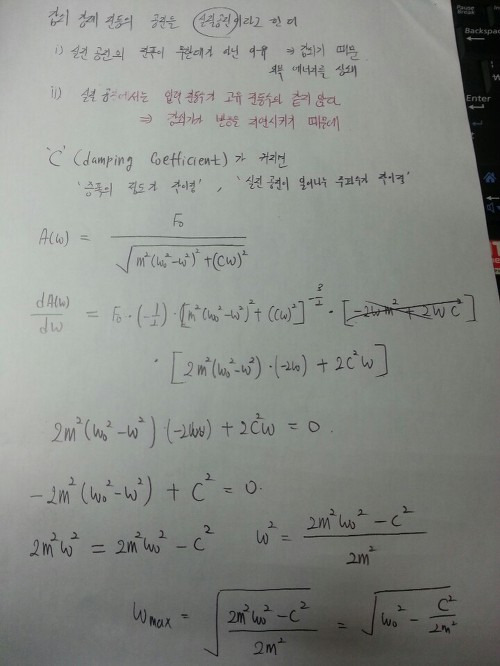 감쇠 강제 진동의 공진을 실전공진이라고 한다
i) 실전 공진의 진폭이 무한대가 아닌 이유 ⇒ 감쇠기 때문
외부 에너지를 상쇄
ii) 실전 공진에서는 입력 진동수가 고유 진동수와 같지 않다
⇒ 감쇠기가 반응을 지연시키기 때문에
'C' (damping Coefficient)가 커지면
'증폭의 정도가 작아짐', '실전 공진이 일어나는 주파수가 작아짐'
A(ω) = F₀ / √(m²(ω₀²-ω²)²+(Cω)²)
dA(ω)/dω = F₀·(-1/2)·[m²(ω₀²-ω²)²+(Cω)²]^(-3/2)·[-2ωm²+2ωC²]
·[2m²(ω₀²-ω²)·(-2ω)+2C²ω]
2m²(ω₀²-ω²)·(-2ω)+2C²ω = 0.
-2m²(ω₀²-ω²)+C² = 0.
2m²ω² = 2m²ω₀² - C² ω² = (2m²ω₀² - C²) / 2m²
ω max = √((2m²ω₀² - C²) / 2m²) = √(ω₀² - C²/2m²)
Pause
Break
Backspace
Enter